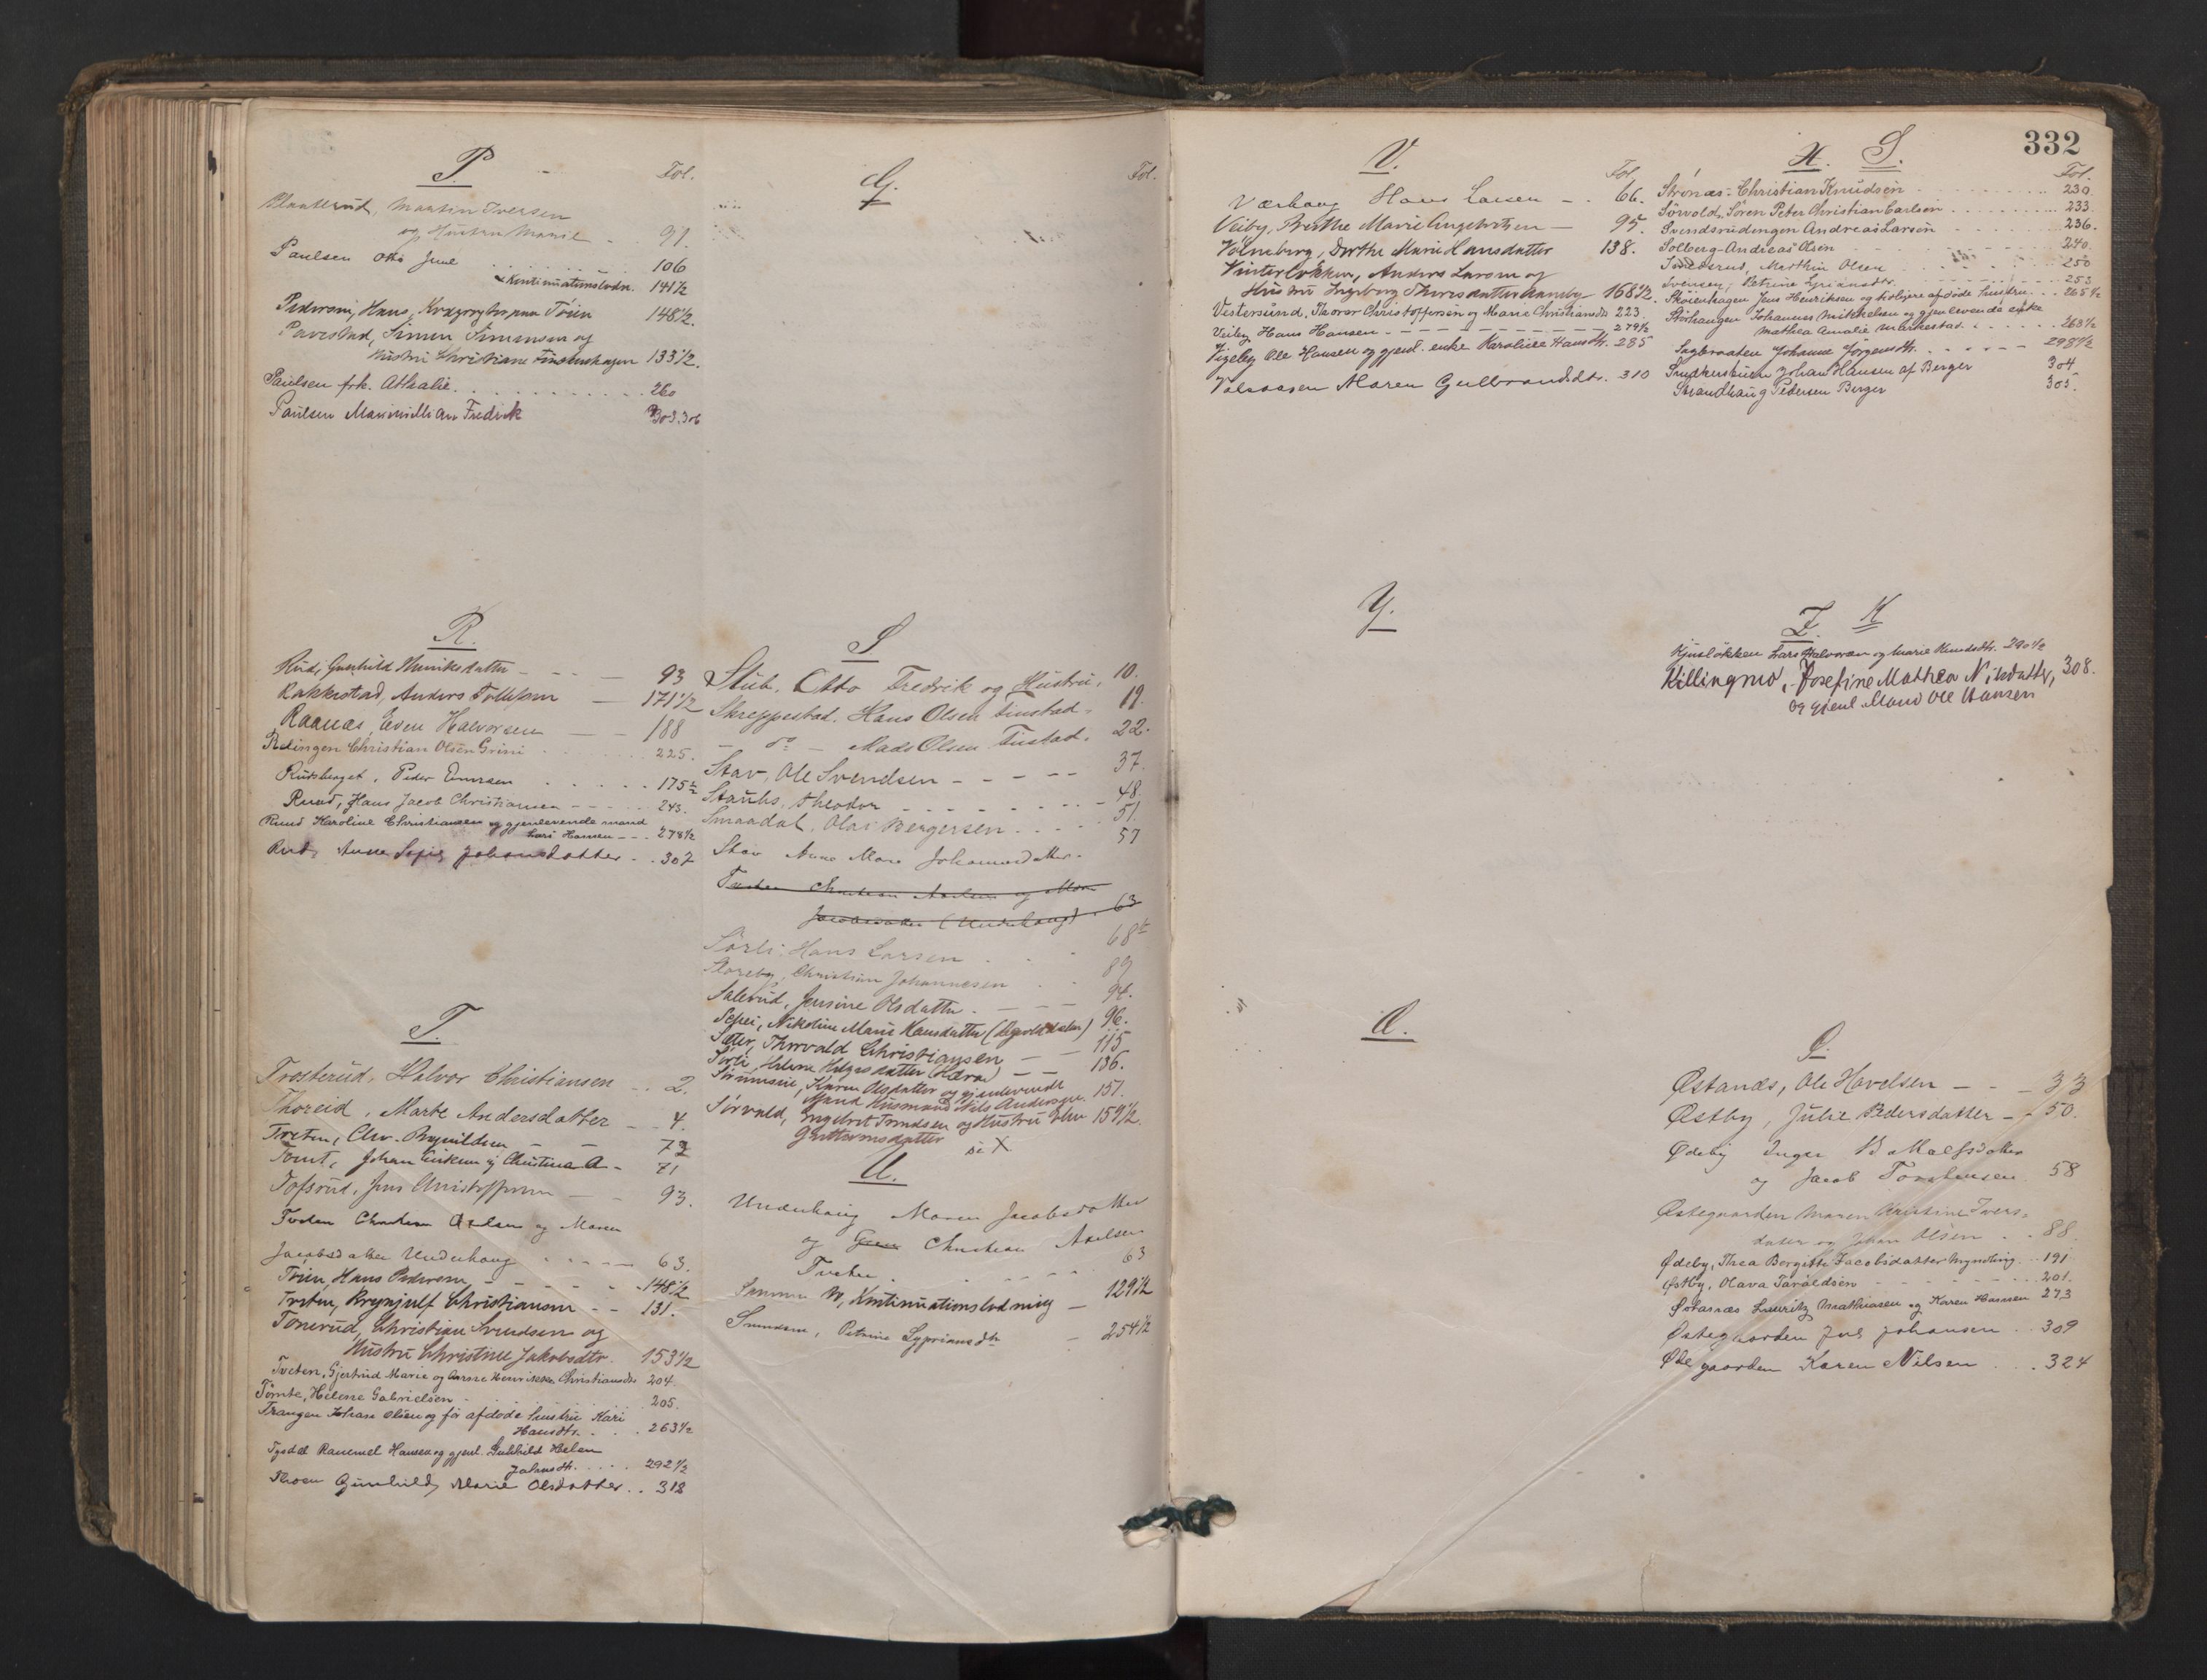 P.
Fol.
Martin Iversen
og Hustru Marie - 91
Paulsen Otto Juul . . . . . . . 106
Kontinuationslodn. 141½
Pedersen, Hans, Tøien 148½.
Simen Simensen og
Hustru Christiane 133½.
Paulsen frk. Athalie. . . . . . . . . . 260
Paulsen Maximillian Fredrik 303.306
R.
Rud, Gunhild Henriksdatter - - - 93
Rakkestad, Anders Tollefsen - 171½
Raanæs, Even Halvorsen - - 188
Christian Olsen Grini . . . . 225.
Rudshaget, Peder Evensen . . . . . 175½
Ruud, Hans Jacob Christiansen - - - - 243.
Ruud Karoline Christiansen og gjenlevende mand
Lars Hansen - - - 278½
Rud, Anne Sofie Johansdatter - . . 307
T.
Trosterud, Halvor Christiansen - . . 2.
Thoreid, Marte Andersdatter - - 4.
Tveten, Chr. Brynildsen - - 72
Tomt, Johan Eriksen og Christine A - 71
Tofsrud, Jens Christoffersen - - 93.
Tveten Christian Axelsen og Maren
Jacobsdatter Underhaug - - - - - 63.
Tøien, Hans Pedersen - - - - - 148½
Tveten, Brynjulf Christiansen - - 131.
Tonerud, Christian Svendsen og
Hustru Christine Jakobsdtr. 153½
Tveten, Gjertrud Marie og Anne Henrikke Christiansdtr 204.
Tømte, Helene Gabrielsen . . . . . . 205.
Trangen Johan Olsen og før afdøde hustru Kari
Hansdtr. . . . 263½
Hansen og gjenl. Gulhild Helen
Johnsdtr. . . . . 292½
Thoen Gunhild Marie Olsdatter . . 312
Q.
Fol.
S
Stub, Otto Fredrik og Hustru, 10.
Skreppestad, Hans Olsen Finstad - 19.
- do - Mads Olsen Finstad. 22.
Stav, Ole Svendsen - - - - - 37.
Theodor - - - - - - - - 48.
Smaadal, Olai Bergersen . . . . . 51.
Stav Anne Mare Johannesdatter - 57
Tveten Christian Axelsen og Maren
Jacobsdatter (Underhaug) . 63
Sørli, Hans Larsen . . . 68½
Storeby, Christian Johannesen . . 89
Salerud, Jensine Olsdatter - - - - 94.
Schei, Nikoline Marie Hansdatter 96.
Sæter, Thorvald Christiansen - - 115
Sørli, Helene Helgesdatter - - 136.
Karen Olsdatter og gjenlevende
Mand Husmand Nils Andersen. 151.
Sørvald, Ingebret Trondsen og Hustru 159½.
Guttormsdatter se X
U.
Underhaug Maren Jacobsdatter
og Christian Axelsen
Tveten . . . . . - - 63
Kontinuationslodning - 129½
Petrine Cypriansdtr - 254½
V.
Fol.
Værhaug Hans Larsen - . 66.
Veiby, Berthe Marie Ingebretsen - 95.
Volmberg, Dorthe Marie Hansdatter 138.
Vinterløkken, Anders Larsen og
Hustru Ingeborg 168½.
Vestersund, Thorer Christoffersen og Marie Christiansdtr 223.
Veiby, Hans Hansen - - - - - - - - - - - 279½
Vigeby Ole Hansen og gjenl. enke Karoline Hansdtr. 285
Volsaasen Maren Gulbrandsdtr. . 310
Y.
Æ.
X. S.
332
Fol.
Strønæs, Christian Knudsen . . . . . . . . 230
Sørvold, Søren Peter Christian Carlsen . . . . . . . 233.
Svendsrudengen Andreas Larsen . . . . . . 236.
Solberg Andreas Olsen . . . . . . . . 240.
Marthin Olsen . . . . . 250
Svensen, Petrine Cypriansdtr. . . . . . . 253
Skoienhagen Jens Henriksen og tidligere afdøde hustru . . . 265½
Storhaugen Johannes Mikkelsen og gjenlevende enke
Mathea Amalie Markestad . . . . . . 268½
Sagbraaten Johanne Jørgensdtr. . . . . . . 298½
Johan Hansen af Berger 304.
Strandhaug Pedersen Berger 305.
Z. K
Kjusløkken Lars Halvorsen og Marie Knudsdtr. 290½
Killingmo, Josefine Mathea Nilsdatter, 308.
og gjenl Mand Ole Hansen
Ø.
Østanæs, Ole Havelsen - - - 33
Østby, Julie Pedersdatter - - 50.
Ødeby Inger
og Jacob Torstensen 58
Østegaarden Maren Kristine Ivers=
datter og Johan Olsen . . 88.
Ødeby, Thea Bergitte Jacobsdatter Myndling . . 191
Østby, Olava Taraldsen - - - - - - - . . . 201.
Østanæs Lauritz Mathiasen og Karen Hansen 273
Østegaarden Juel Johansen . . 309
Ødegaarden Karen Nilsen . . . 324